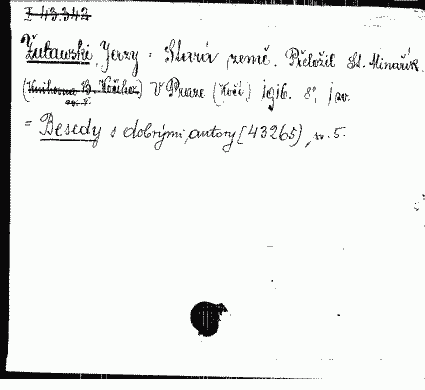 I 43.342
Żuławski, Jerzy : Stará země. Přeložil St. Minařík.
(Knihovna B. Kočího) V Praze (Kočí) 1916. 8°, 1 sv.
= Besedy s dobrými autory [43265], sv. 5.